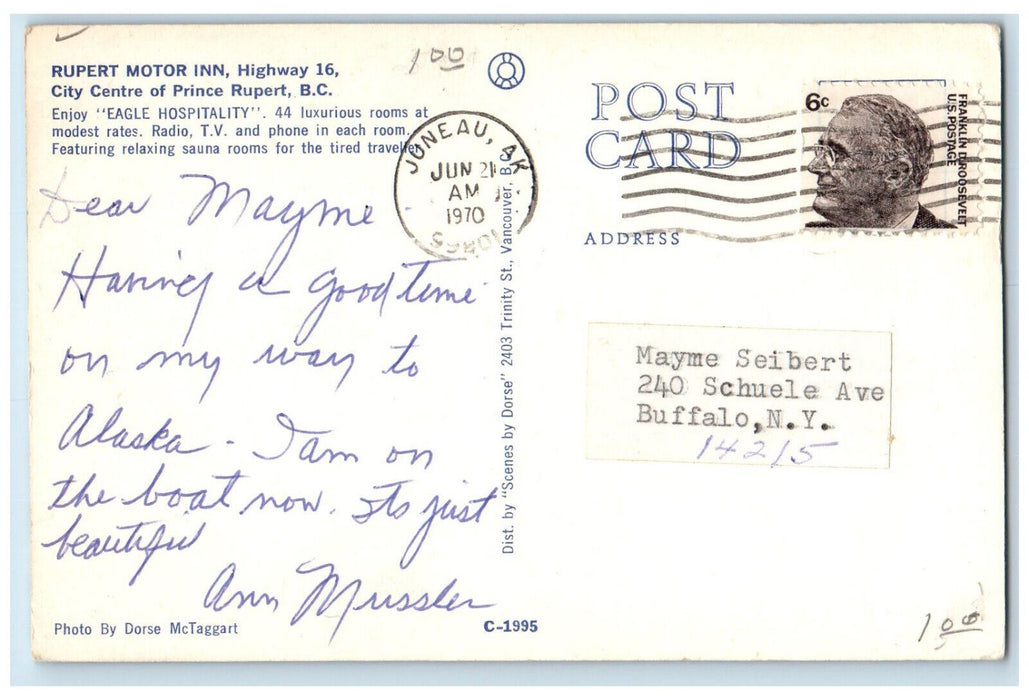 1 00
RUPERT MOTOR INN, Highway 16,
City Centre of Prince Rupert, B.C.
Enjoy "EAGLE HOSPITALITY". 44 luxurious rooms at
modest rates. Radio, T.V. and phone in each room.
Featuring relaxing sauna rooms for the tired traveller
Dear Mayme
Having a good time
on my way to
Alaska - I am on
the boat now. Its just
beautiful
Ann Mussler
Photo By Dorse McTaggart
C-1995
Dist. by "Scenes by Dorse" 2403 Trinity St., Vancouver, B.C.
JUNEAU, AK
JUN 21
AM
1970
POST
CARD
ADDRESS
6c
FRANKLIN D. ROOSEVELT
U.S. POSTAGE
Mayme Seibert
240 Schuele Ave
Buffalo, N.Y.
14215
1 00